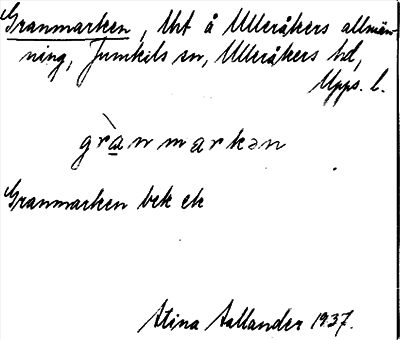 Granmarken, Uht å Ulleråkers allmän-
ning, Jumkils sn, Ulleråkers hd,
Upps. l.
grànmarkən
Granmarken bek ek
Stina Aallander 1937.